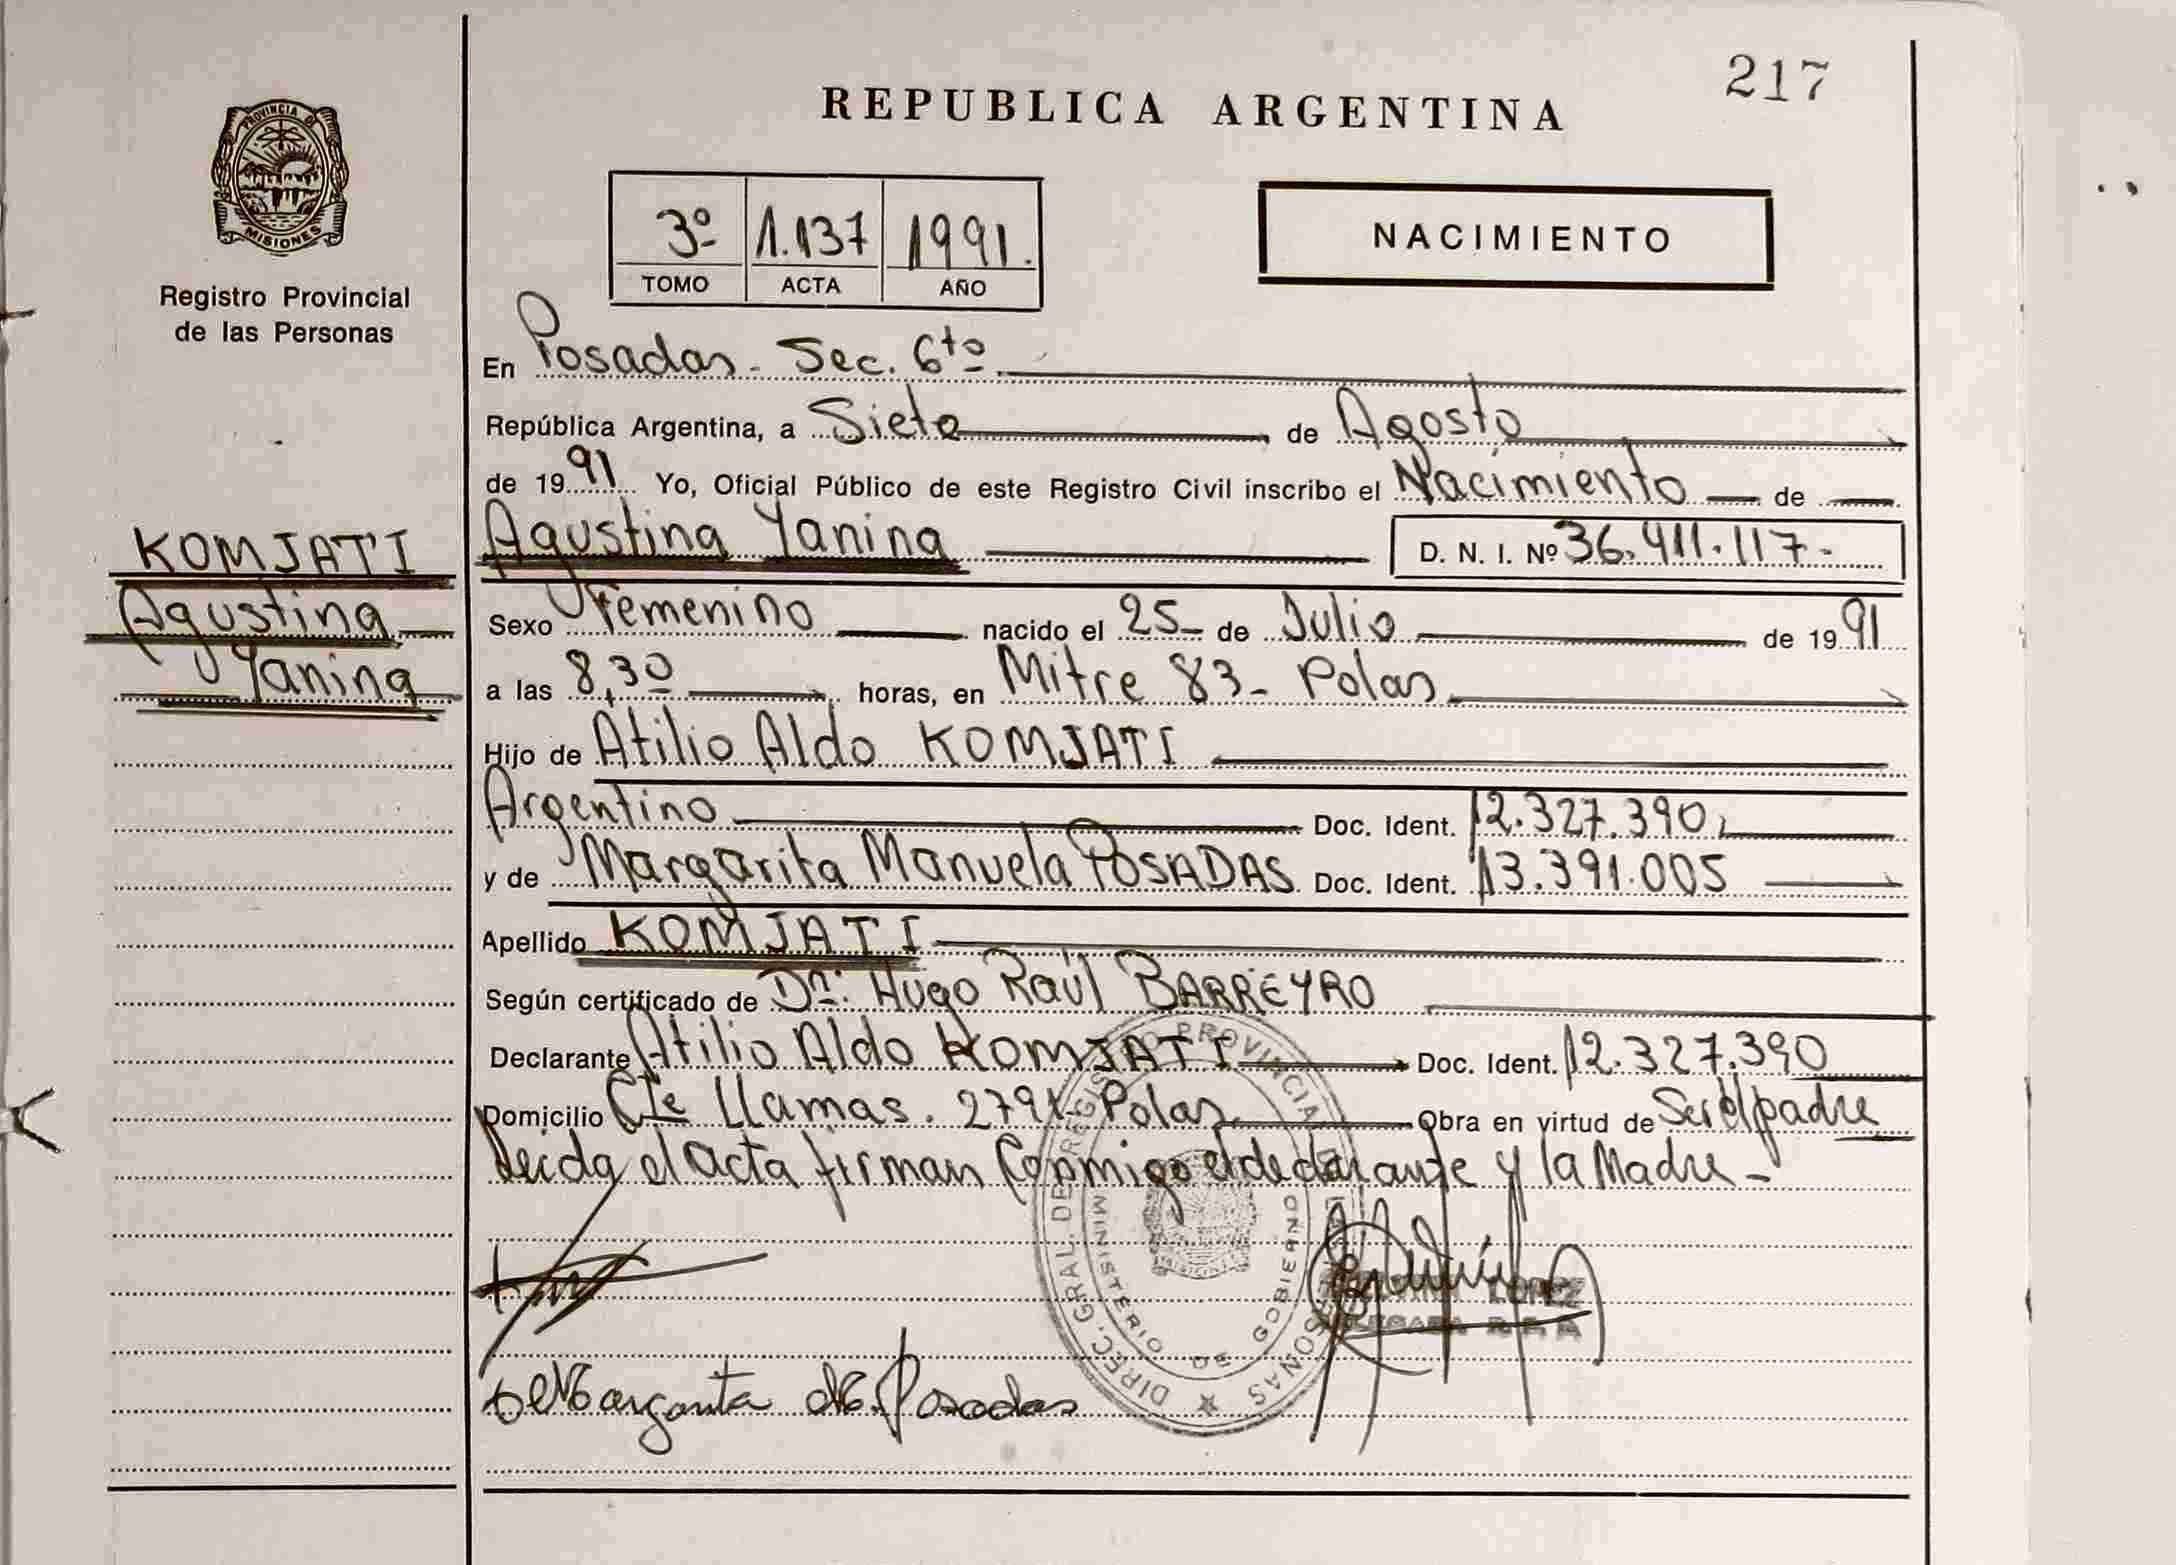 217
REPUBLICA ARGENTINA
PROVINCIA DE
MISIONES
Registro Provincial
de las Personas
3º 1.137 1991.
TOMO ACTA AÑO
NACIMIENTO
En Posadas - Sec. 6ta
República Argentina, a Siete de Agosto
de 1991 Yo, Oficial Público de este Registro Civil inscribo el Nacimiento de
Agustina Yanina D. N. I. Nº 36.411.117-
KOMJATI
Agustina
Yanina
Sexo Femenino nacido el 25- de Julio de 1991
a las 8,30 horas, en Mitre 83- Pdas
Hijo de Atilio Aldo KOMJATI
Argentino Doc. Ident. 12.327.390
y de Margarita Manuela POSADAS Doc. Ident. 13.391.005
Apellido KOMJATI
Según certificado de Dn. Hugo Raúl BARREYRO
Declarante Atilio Aldo KOMJATI Doc. Ident. 12.327.390
Domicilio Cte Llamas. Pdas Obra en virtud de Ser el padre
Leida el acta firman Conmigo el declarante y la Madre -
DIREC. GRAL. DE REGISTRO PROVINCIAL DE LAS PERSONAS
MINISTERIO DE GOBIERNO
MISIONES
LOPEZ
Margarita de Posadas